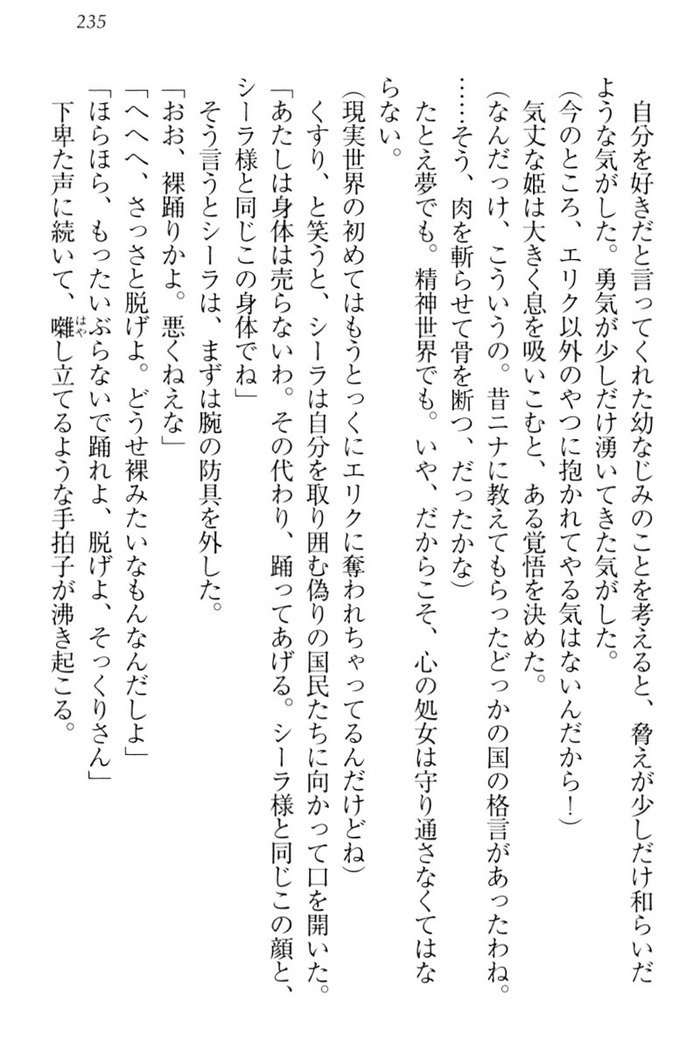 235
自分を好きだと言ってくれた幼なじみのことを考えると、脅えが少しだけ和らいだ
ような気がした。勇気が少しだけ湧いてきた気がした。
(今のところ、エリク以外のやつに抱かれてやる気はないんだから！)
気丈な姫は大きく息を吸いこむと、ある覚悟を決めた。
(なんだっけ、こういうの。昔ニナに教えてもらったどっかの国の格言があったわね。
……そう、肉を斬らせて骨を断つ、だったかな)
たとえ夢でも。精神世界でも。いや、だからこそ、心の処女は守り通さなくてはな
らない。
(現実世界の初めてはもうとっくにエリクに奪われちゃってるんだけどね)
くすり、と笑うと、シーラは自分を取り囲む偽りの国民たちに向かって口を開いた。
「あたしは身体は売らないわ。その代わり、踊ってあげる。シーラ様と同じこの顔と、
シーラ様と同じこの身体でね」
そう言うとシーラは、まずは腕の防具を外した。
「おお、裸踊りかよ。悪くねえな」
「へへへ、さっさと脱げよ。どうせ裸みたいなもんなんだしよ」
「ほらほら、もったいぶらないで踊れよ、脱げよ、そっくりさん」
下卑た声に続いて、囃し立てるような手拍子が沸き起こる。
はや